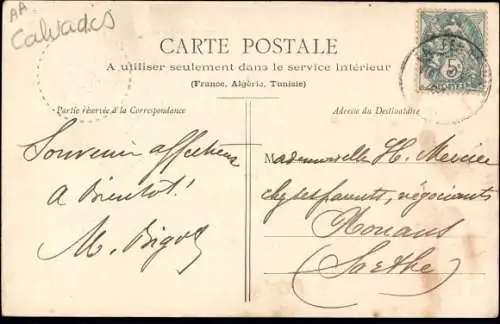 AA
Calvados
CARTE POSTALE
A utiliser seulement dans le service intérieur
(France, Algérie, Tunisie)
Partie réservée à la Correspondance
Adresse du Destinataire
Souvenir affectueux
A Bientôt!
M. Bigot
Mademoiselle H. Mercier
chez ses parents, négociants
Rouans
(Sarthe)
5